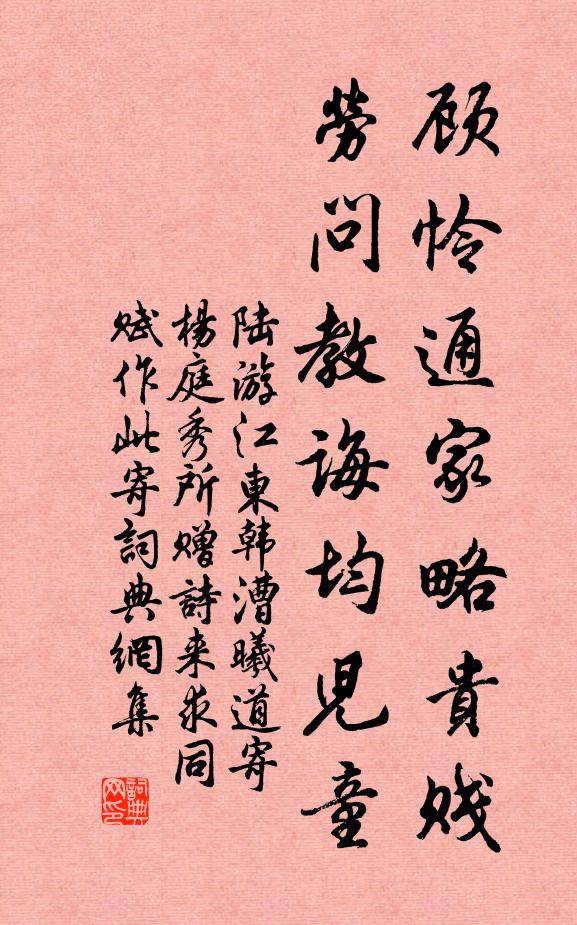 顾怜通家略贵贱
劳问教诲均児童
陆游江東韩漕曦道寄
楊庭秀所赠詩来求同
赋作此寄詞典網集
詞典
网印